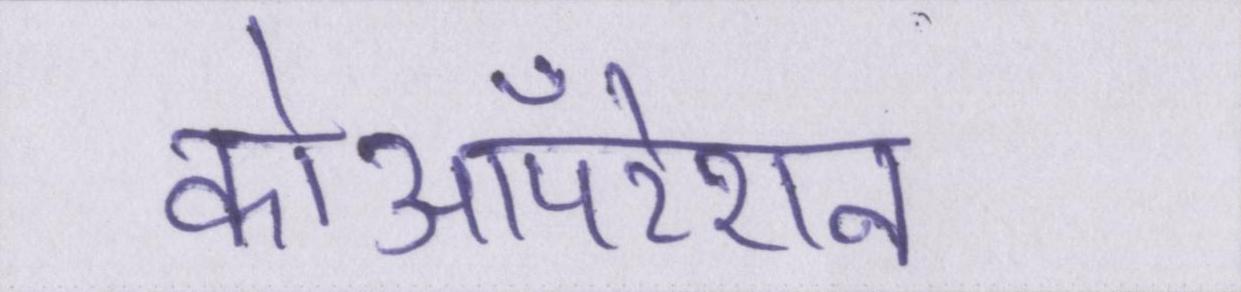 कोऑपरेशन